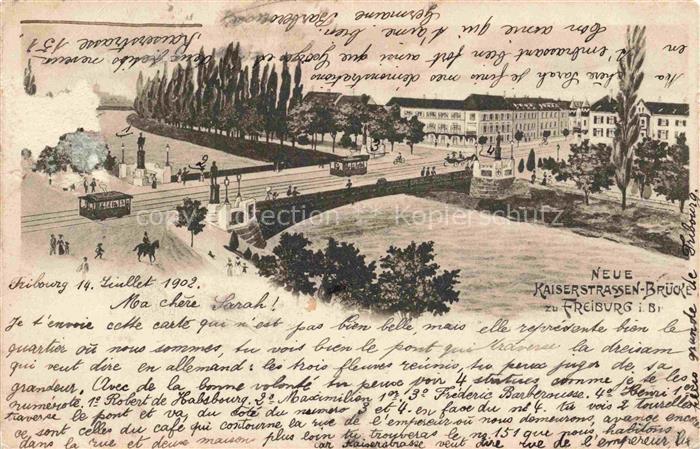 NEUE
KAISERSTRASSEN-BRÜCKE
ZU FREIBURG i. Br
Fribourg 14 Juillet 1902.
Ma chère Sarah!
Je t'envoie cette carte qui n'est pas bien belle, mais elle représente bien le
quartier où nous sommes, tu vois bien le pont qui traverse la dreisam
qui veut dire en allemand: les trois fleuves reunis, tu peux juger de sa
grandeur, Avec de la bonne volonté tu peux voir 4 statues comme je te les
numérote. 1º Robert de Habsbourg. 2º Maximilien 1er 3º Frédéric Barberousse. 4º Henri
traverse le pont et va du coté du numero 3 et 4. en face du nº 4. tu vois 2 tourelles
ce sont celles du café qui contourne la rue de l'empereur où nous demeurons, avance encore
dans la rue et deux maison plus loin tu trouveras le nº 151 que nous habitons
car Kaiserstrasse veut dire rue de l'empereur
Ma chère Sarah je finis mes démonstrations
en t'embrassant bien fort ainsi que Georges et
Ton amie qui t'aime bien.
Germaine Barbero
Kaiserstrasse 151